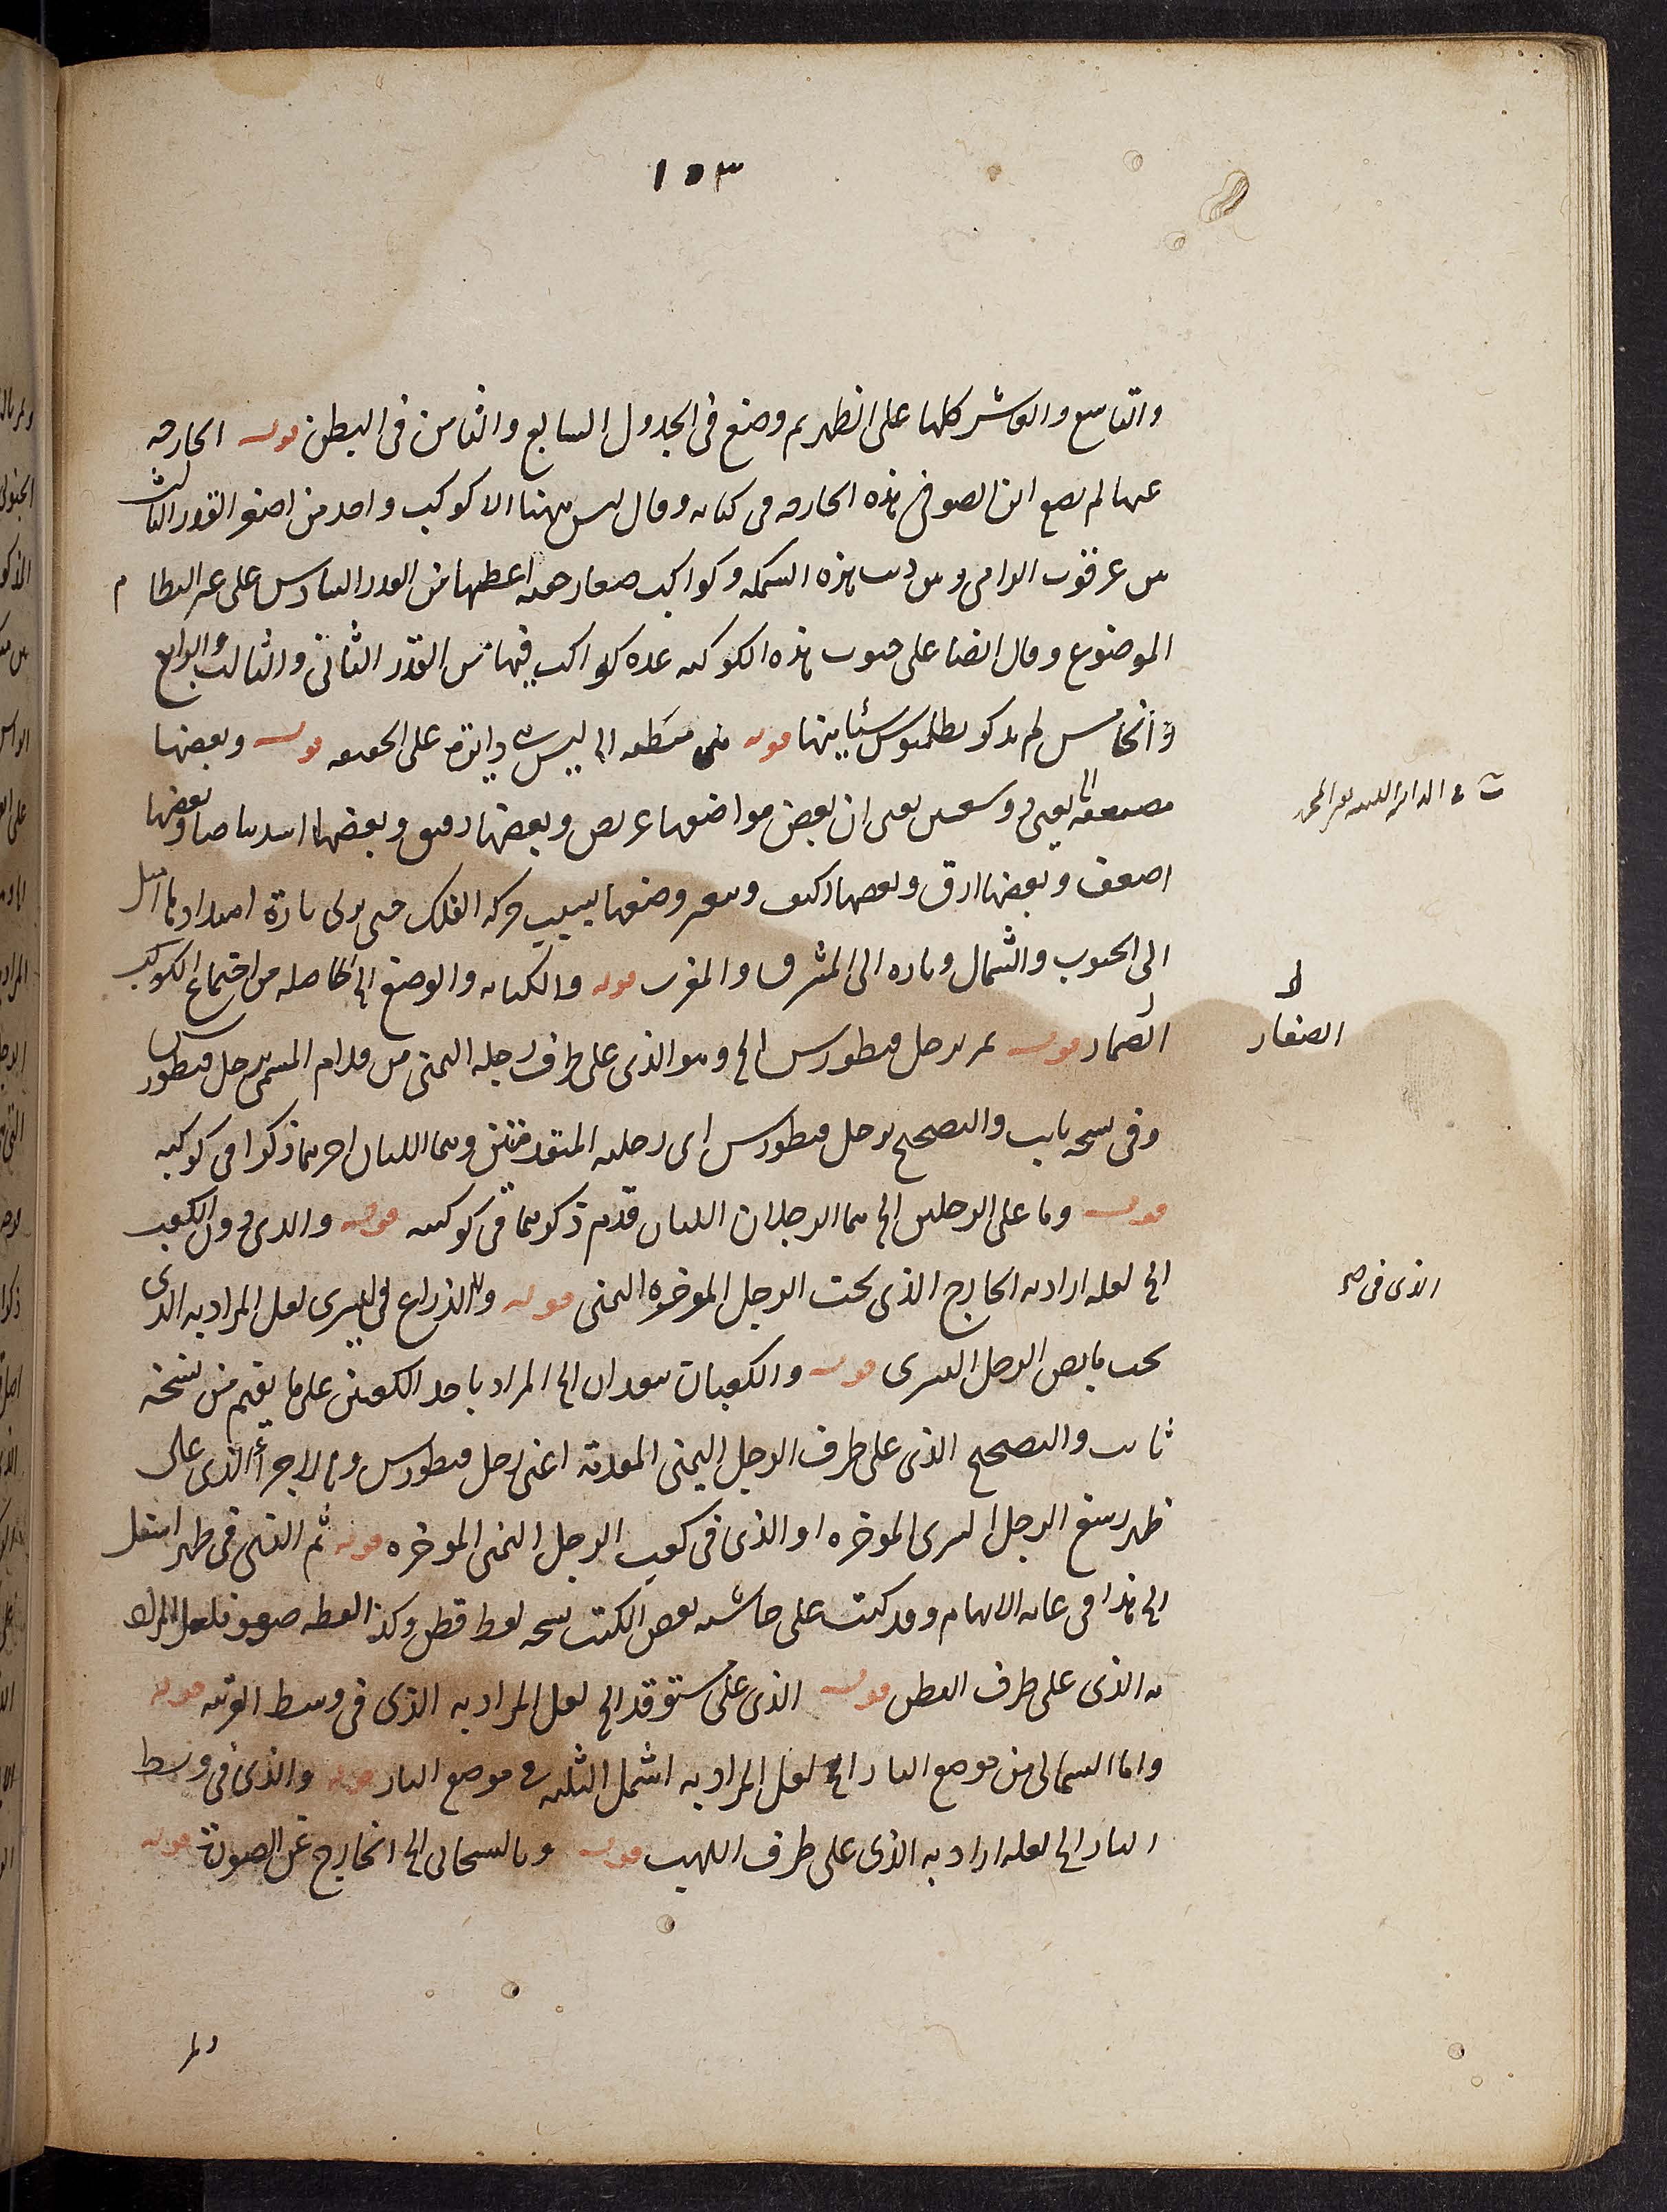 ١٥٣
والتاسع والعاشر كلها على الظهر ثم وضع في الجدول السابع والثامن في البطن قوله الخارجه
عنها لم يضع ابن الصوفى هذه الخارجه فى كتابه وقال ليس ههنا الا كوكب واحد من اصغر القدر الثالث
بين عرقوب الرامى وبين ذنب هذه السمكه وكواكب صغار خفيه اعظمها من القدر السادس على غير النظام
الموضوع وقال ايضا على جنوب هذه الكوكبه عده كواكب فيها من القدر الثانى والثالث والرابع
والخامس لم يذكر بطلميوس شيئا منها قوله هى منطقه الخ ليس دايرة على الحقيقه قوله وبعضها
يعنى ان بعض مواضعها عريض وبعضها دقيق وبعضها اشد بياضا وبعضها
اضعف وبعضها ارق وبعضها اكثف ويتغير وضعها بسبب حركه الفلك حتى يرى تارة امتدادها
الى الجنوب والشمال وتاره الى المشرق والمغرب قوله والكثافه والوضع الخ الحاصله من اجتماع الكواكب
الصغار قوله ثم برجل قنطورس الخ وهو الذى على طرف رجله اليمنى من قدام المسمى برجل قنطورس
وفى نسخه ثابت والتصحيح برجل قنطورس اى رجليه المتقدمتين وهما اللتان اخريهما ذكرا فى كوكبه
قوله وما على الرجلين الخ هما الرجلان اللتان قدم ذكرهما فى كوكبته قوله والذى دون الكعب
الخ لعله اراد به الخارج الذى تحت الرجل الموخره اليمنى قوله والذراع اليسرى لعل المراد به الذى
تحت مابض الرجل اليسرى قوله والكعبان يبعدان الخ المراد باحد الكعبين على ما يفهم من نسخه
ثابت والتصحيح الذى على طرف الرجل اليمنى المقدمة اعنى رجل قنطورس وبالاخر الذى على
ظهر رسغ الرجل اليسرى الموخره او الذى فى كعب الرجل اليمنى الموخره قوله ثم التى فى ظهر اسفل
الخ هذا فى غايه الابهام وقد كتب على حاشيه بعض الكتب نسخه لفظ قطن وكذا لفظه فلعل المراد
به الذى على طرف البطن قوله الذى على مستوقد الخ لعل المراد به الذى فى وسط القربه قوله
واما الشمالى من موضع النار الخ لعل المراد به اشمل الثلثه فى موضع النار قوله والذى فى وسط
النار الخ لعله اراد به الذى على طرف اللهيب قوله وبالسحابى الخ الخارج عن الصورة قوله
الصغار
الذى فى صح